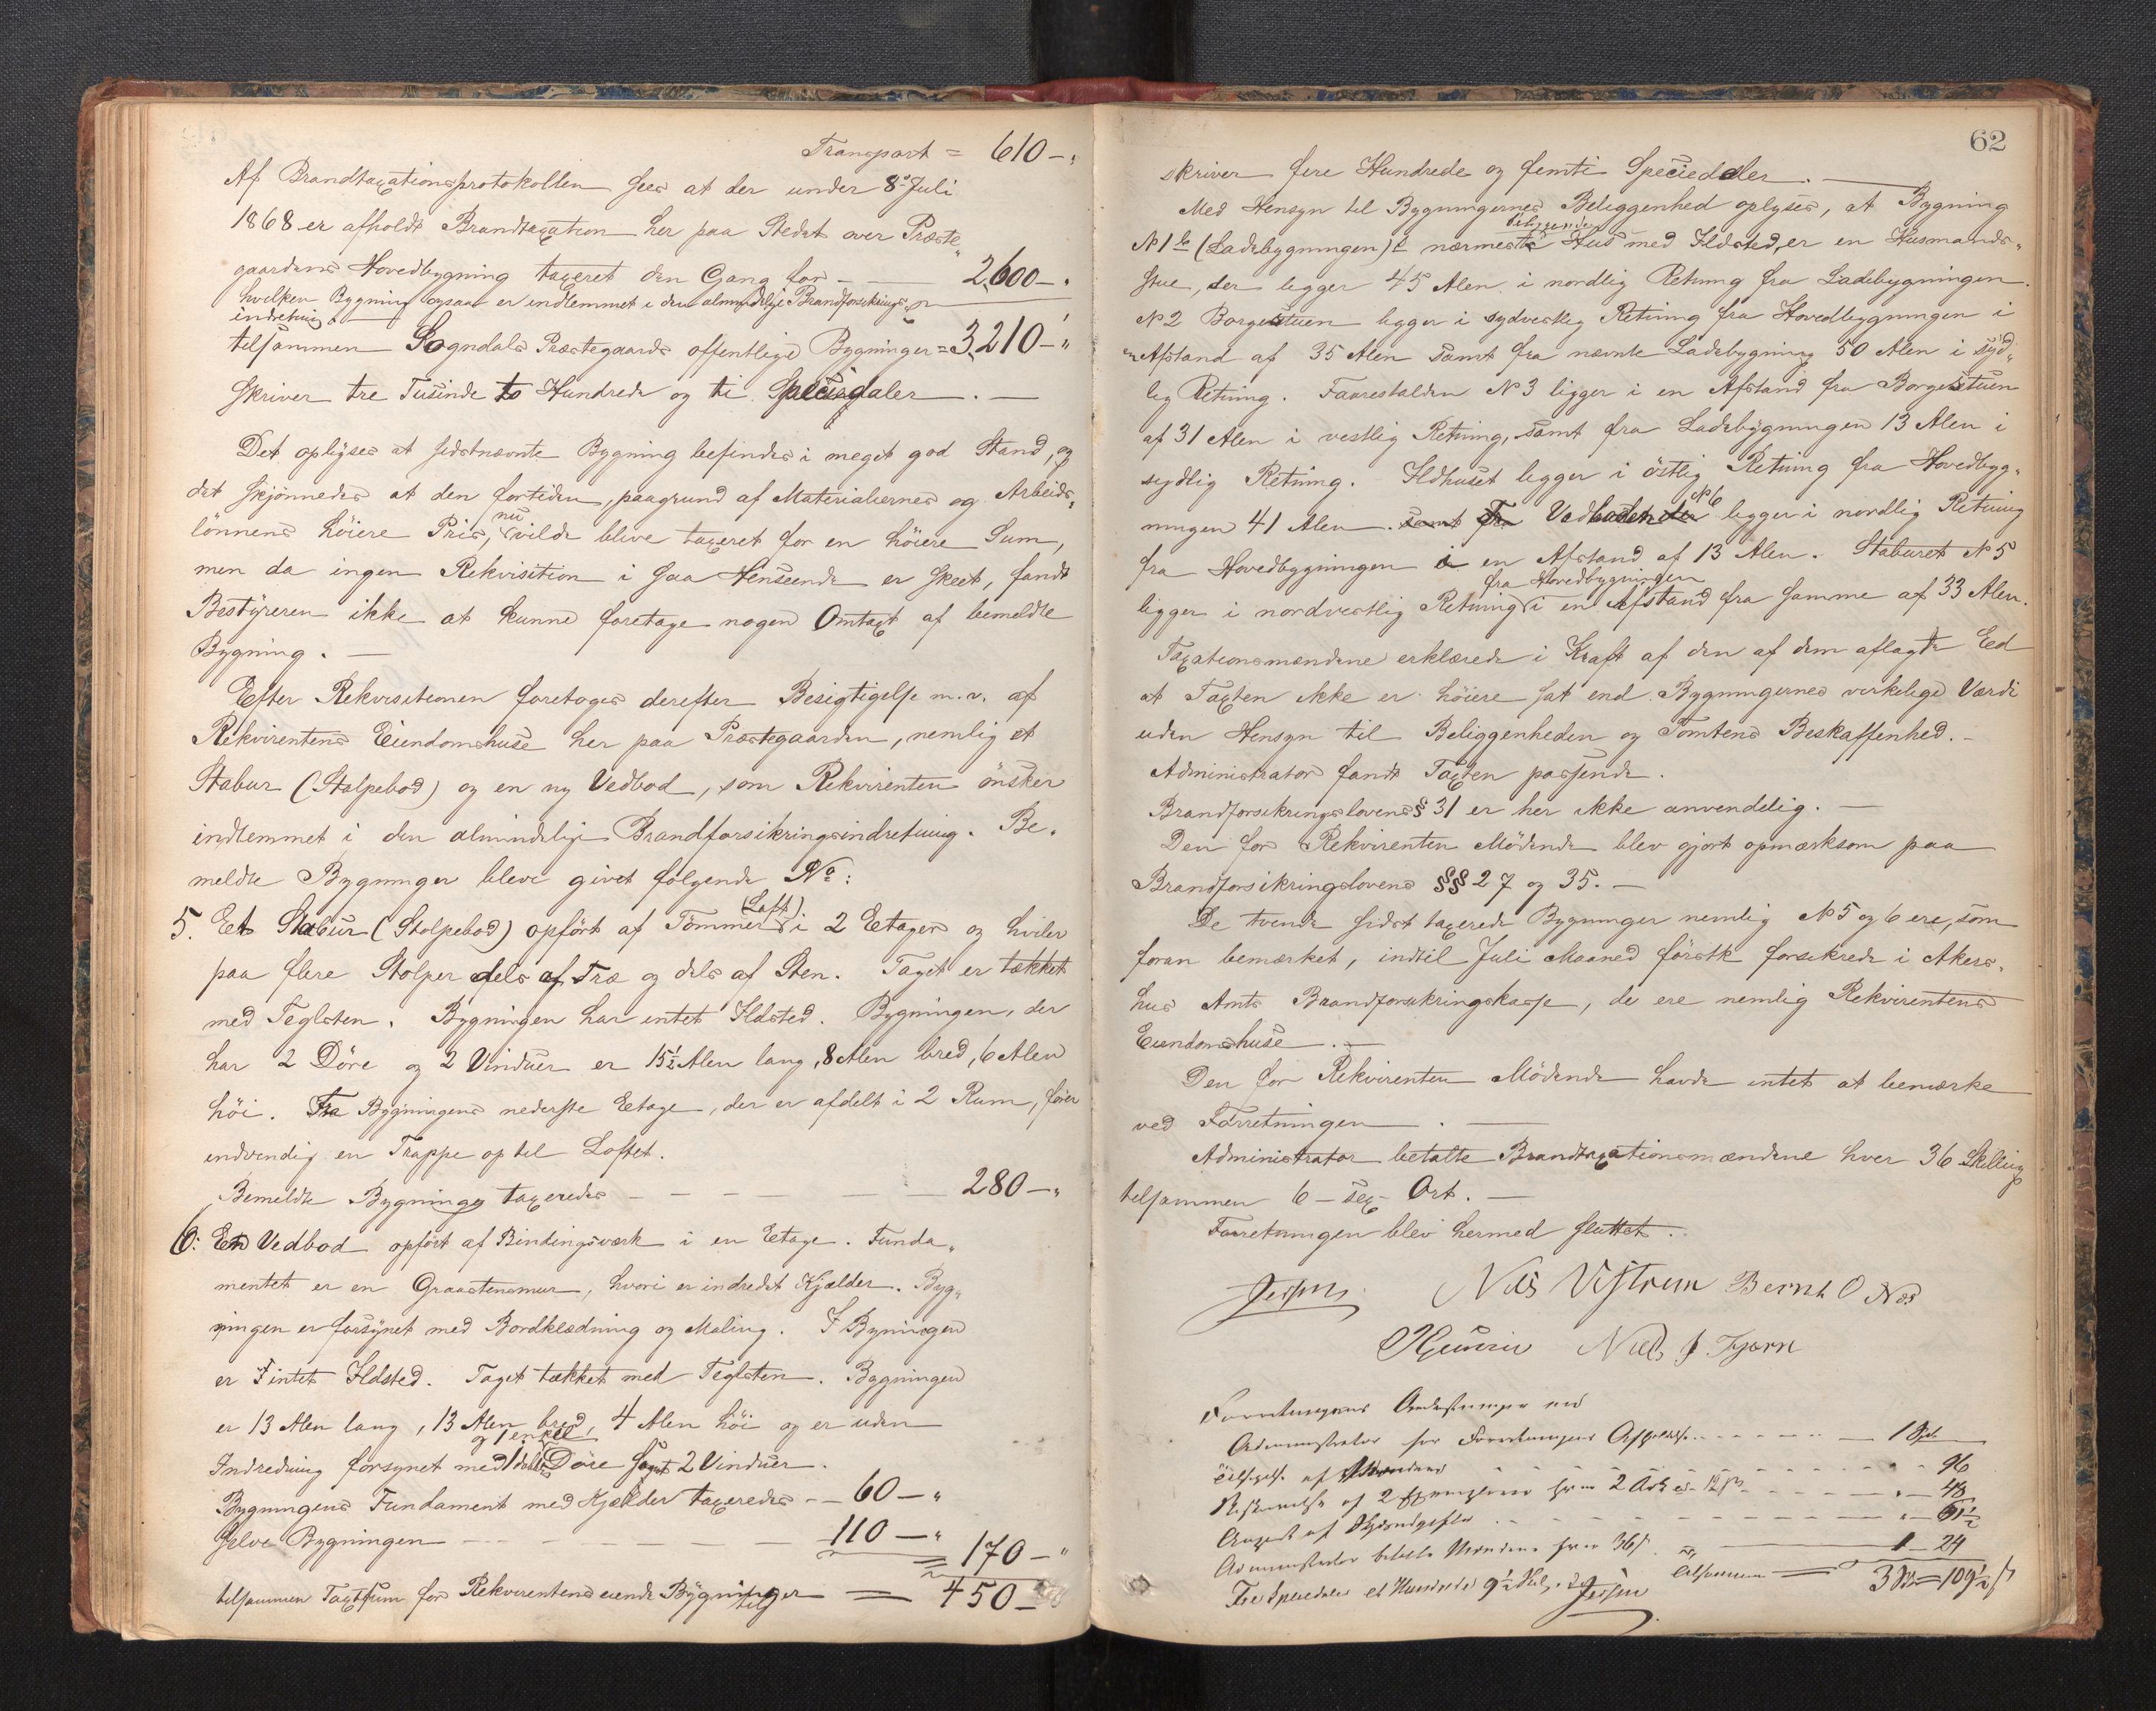 Transport = 610 – "
Af Brandtaxationsprotokollen sees at der under 8de Juli
1868 er afholdt Brandtaxation her paa Stedet over Præste„
gaardens Hovedbygning taxeret den Gang for – 2,600 – "
hvilken Bygning ogsaa er indlemmet i den almindelige Brandforsikrings„
indretning.
tilsammen Sogndals Præstegaards offentlige Bygninger = 3,210 – "
skriver tre Tusinde to Hundrede og ti Speciedaler. –
Det oplyses at sidstnævnte Bygning befindes i meget god Stand, og
det skjönnedes at den fortiden, paagrund af Materialiernes og Arbeids„
lönnens höiere Pris, nu vilde blive taxeret for en höiere Sum,
men da ingen Rekvisition i saa Henseende er skeet, fandt
Bestyreren ikke at kunne foretage nogen Omtaxt af bemeldte
Bygning. –
Efter Rekvisitionen foretoges derefter Besigtigelse m. v. af
Rekvirentens Eiendomshuse her paa Præstegaarden, nemlig et
Stabur (Stolpebod) og en ny Vedbod, som Rekvirenten önsker
indlemmet i den almindelige Brandforsikringsindretning. Be„
meldte Bygninger bleve givet følgende No:
5. Et Stabur (Stolpebod) opfört af Tömmer (Laft) i 2 Etager og hviler
paa flere Stolper dels af Træ og dels af Sten. Taget er tækket
med Teglsten. Bygningen har intet Ildsted. Bygningen, der
har 2 Döre og 2 Vinduer er 15½ Alen lang, 8 Alen bred, 6 Alen
höi. Fra Bygningens nederste Etage, der er afdelt i 2 Rum, förer
indvendig en Trappe op til Loftet.
Bemeldte Bygning taxeredes – – – – – 280 – "
6: En Vedbod opfört af Bindingsværk i en Etage. Funda„
mentet er en Graastensmur, hvori er indredet Kjælder. Byg„
ningen er forsynet med Bordklædning og Maling. I Bygningen
er intet Ildsted. Taget tækket med Teglsten. Bygningen
er 13 Alen lang, 13 Alen bred, 4 Alen höi og er uden
Indredning forsynet med 1 dobbel og 1 enkel Döre samt 2 Vinduer.
Bygningens Fundament med Kjælder taxeredes – – 60 – "
Selve Bygningen – – – – – 110 – " = 170 – "
tilsammen Taxtsum for Rekvirentens eiende Bygninger = 450 –
62
skriver fire Hundrede og femti Speciedaler. –
Med Hensyn til Bygningernes Beliggenhed oplyses, at Bygning
N 1 (Ladebygningen)s nærmeste Hus med Ildsted, er en Husmands„
stue, der ligger 45 Alen i nordlig Retning fra Ladebygningen.
N 2 Borgestuen ligger i sydvestlig Retning fra Hovedbygningen i
en Afstand af 35 Alen samt fra nævnte Ladebygning 50 Alen i syd„
lig Retning. Faarestalden N 3 ligger i en Afstand fra Borgestuen
af 31 Alen i vestlig Retning, samt fra Ladebygningen 13 Alen i
sydlig Retning. Ildhuset ligger i östlig Retning fra Hovedbyg„
ningen 41 Alen. samt fra Vedboden N 6 ligger i nordlig Retning
fra Hovedbygningen i en Afstand af 13 Alen. Staburet N 5
ligger i nordvestlig Retning fra Hovedbygningen i en Afstand fra samme af 33 Alen.
Taxationsmændene erklærede i Kraft af den af dem aflagte Eed
at Taxten ikke er höiere sat end Bygningernes virkelige Værdi
uden Hensyn til Beliggenheden og Tomtens Beskaffenhed. –
Administrator fandt Taxten passende.
Brandforsikringslovens § 31 er her ikke anvendelig. –
Den for Rekvirenten Mödende blev gjort opmærksom paa
Brandforsikringslovens §§ 27 og 35. –
De tvende sidst taxerede Bygninger nemlig N 5 og 6 ere, som
foran bemærket, indtil Juli Maaned förstk forsikrede i Akers„
hus Amts Brandforsikringskasse, de ere nemlig Rekvirentens
Eiendomshuse. –
Den for Rekvirenten Mödende havde intet at bemærke
ved Forretningen. –
Administrator betalte Brandtaxationsmændene hver 36 Skilling
tilsammen 6 – sex – Ort. –
Forretningen blev hermed sluttet.
Jessen Nils Bernt O Næs
Niels J
Forretningens
Administrator for Forretningens – – – 1 Spd.
Tilsigelse af Mændene – – – 96
af 2 2 Ark – – – 48
af – – – 61½
Administrator betalte Mændene hver 36 ß 1 – 24
Tre Speciedaler et Hundrede 9½ Jessen tilsammen = 3 – 109½ ß